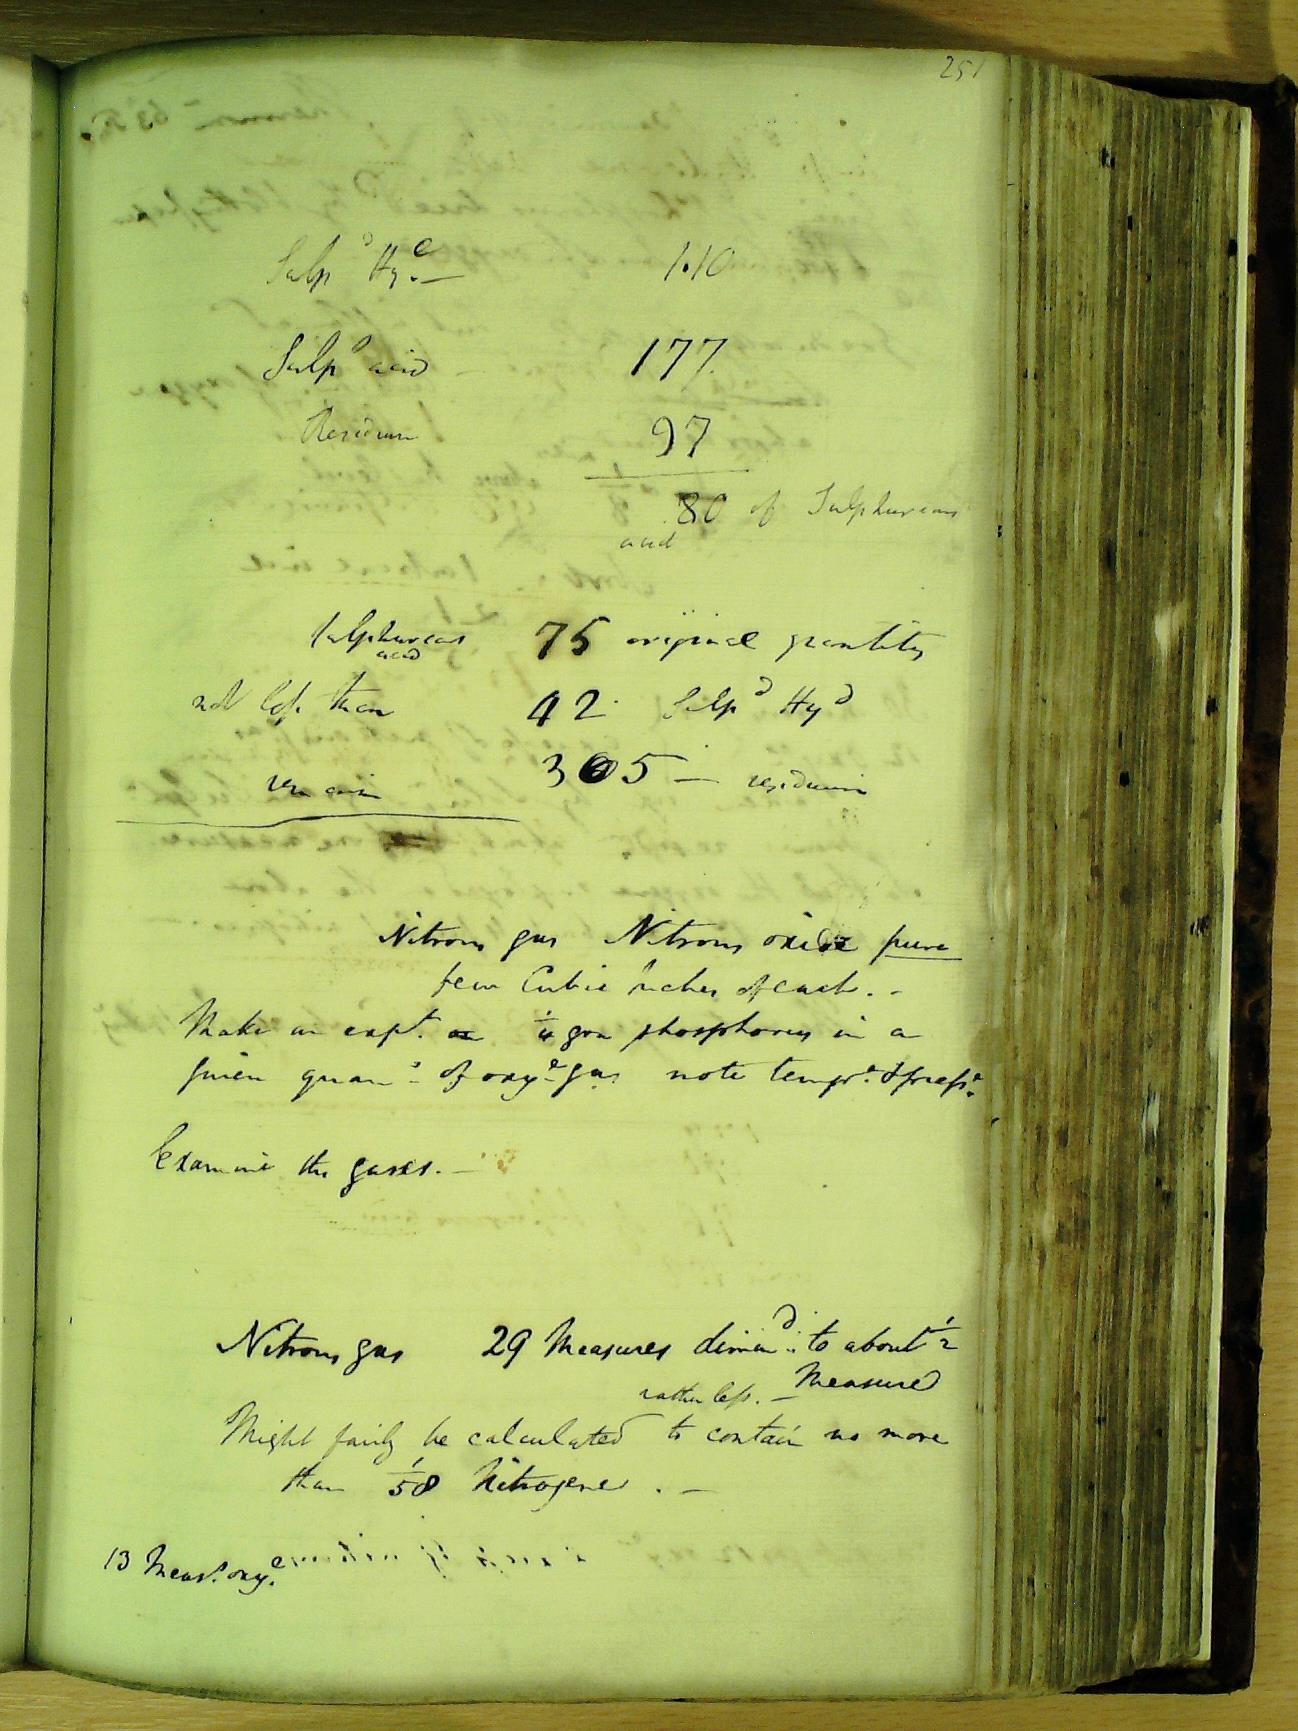 251
Sulpd Hye. — 1.10
Sulps acid 177.
Residuum 97
80 of Sulphureous
acid
Sulphureous 75 original quantity
acid
not less than 42. Sulpd Hyd
remain 305 — residuum
Nitrous gas Nitrous oxide pure
few Cubic Inches of each. -
Make an expt. on 1/4 grn phosphorus in a
given quans - of oxye- gas note tempe. & presse.
Examine the gases. —
Nitrous gas 29 Measures dimind. to about 1/2
rather less. — Measure
Might fairly be calculated to contain no more
than 1/58 Nitrogene . —
13 Meas. oxye.